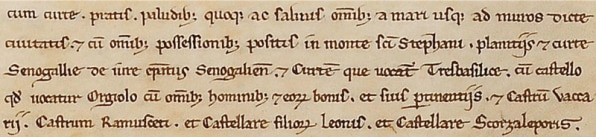 cum curte . pratis . paludib; quoq; ac salinis om̅ib; a mari usq; ad muros dicte
ciuitatis . ⁊ cū om̅ib; possessionib; positis in monte sc̅i Stephani . planitijs ⁊ curte
Senogallie de iure ep̅atus Senogalien̅ . ⁊ Curtem que uocat̅ Tresbasilice . cū castello
qd̅ uocatur Orgiolo cū om̅ib; hominib; ⁊ eoꝝ bonis . et suis ꝑtinentijs . ⁊ Castrū Vacca
rij . Castrum Ramusceti . et Castellare filioꝝ Leonis . et Castellare Scorzaleporis .